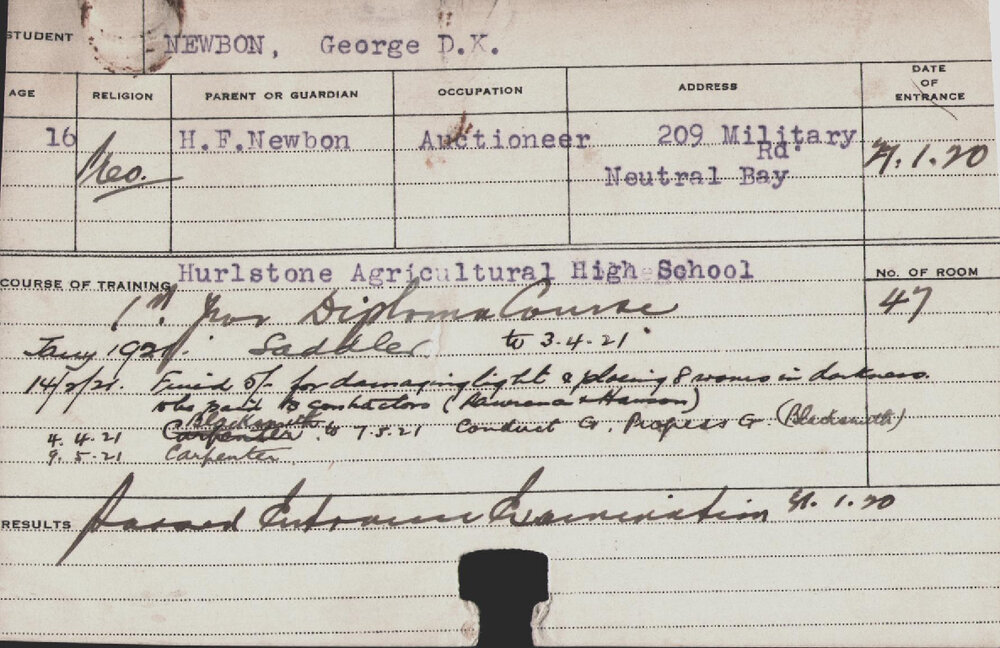 STUDENT NEWBON, George D.K.
AGE RELIGION PARENT OR GUARDIAN OCCUPATION ADDRESS DATE OF ENTRANCE
16 H.F.Newbon Auctioneer 209 Military Rd. .1.20
Neutral Bay
COURSE OF TRAINING Hurlstone Agricultural High School No. OF ROOM
Diploma Course 47
Jany 1921. Saddler to 3-4-21
14/2/21. Fined 5/- for damaging light & placing 8 rooms in darkness.
to be paid to contractors (Lawrence & Hanson)
Blacksmith
4.4.21 Carpenter to 7.5.21 Conduct G. Progress G (Blacksmith)
9.5.21 Carpenter
RESULTS Passed Entrance Examination .1.20